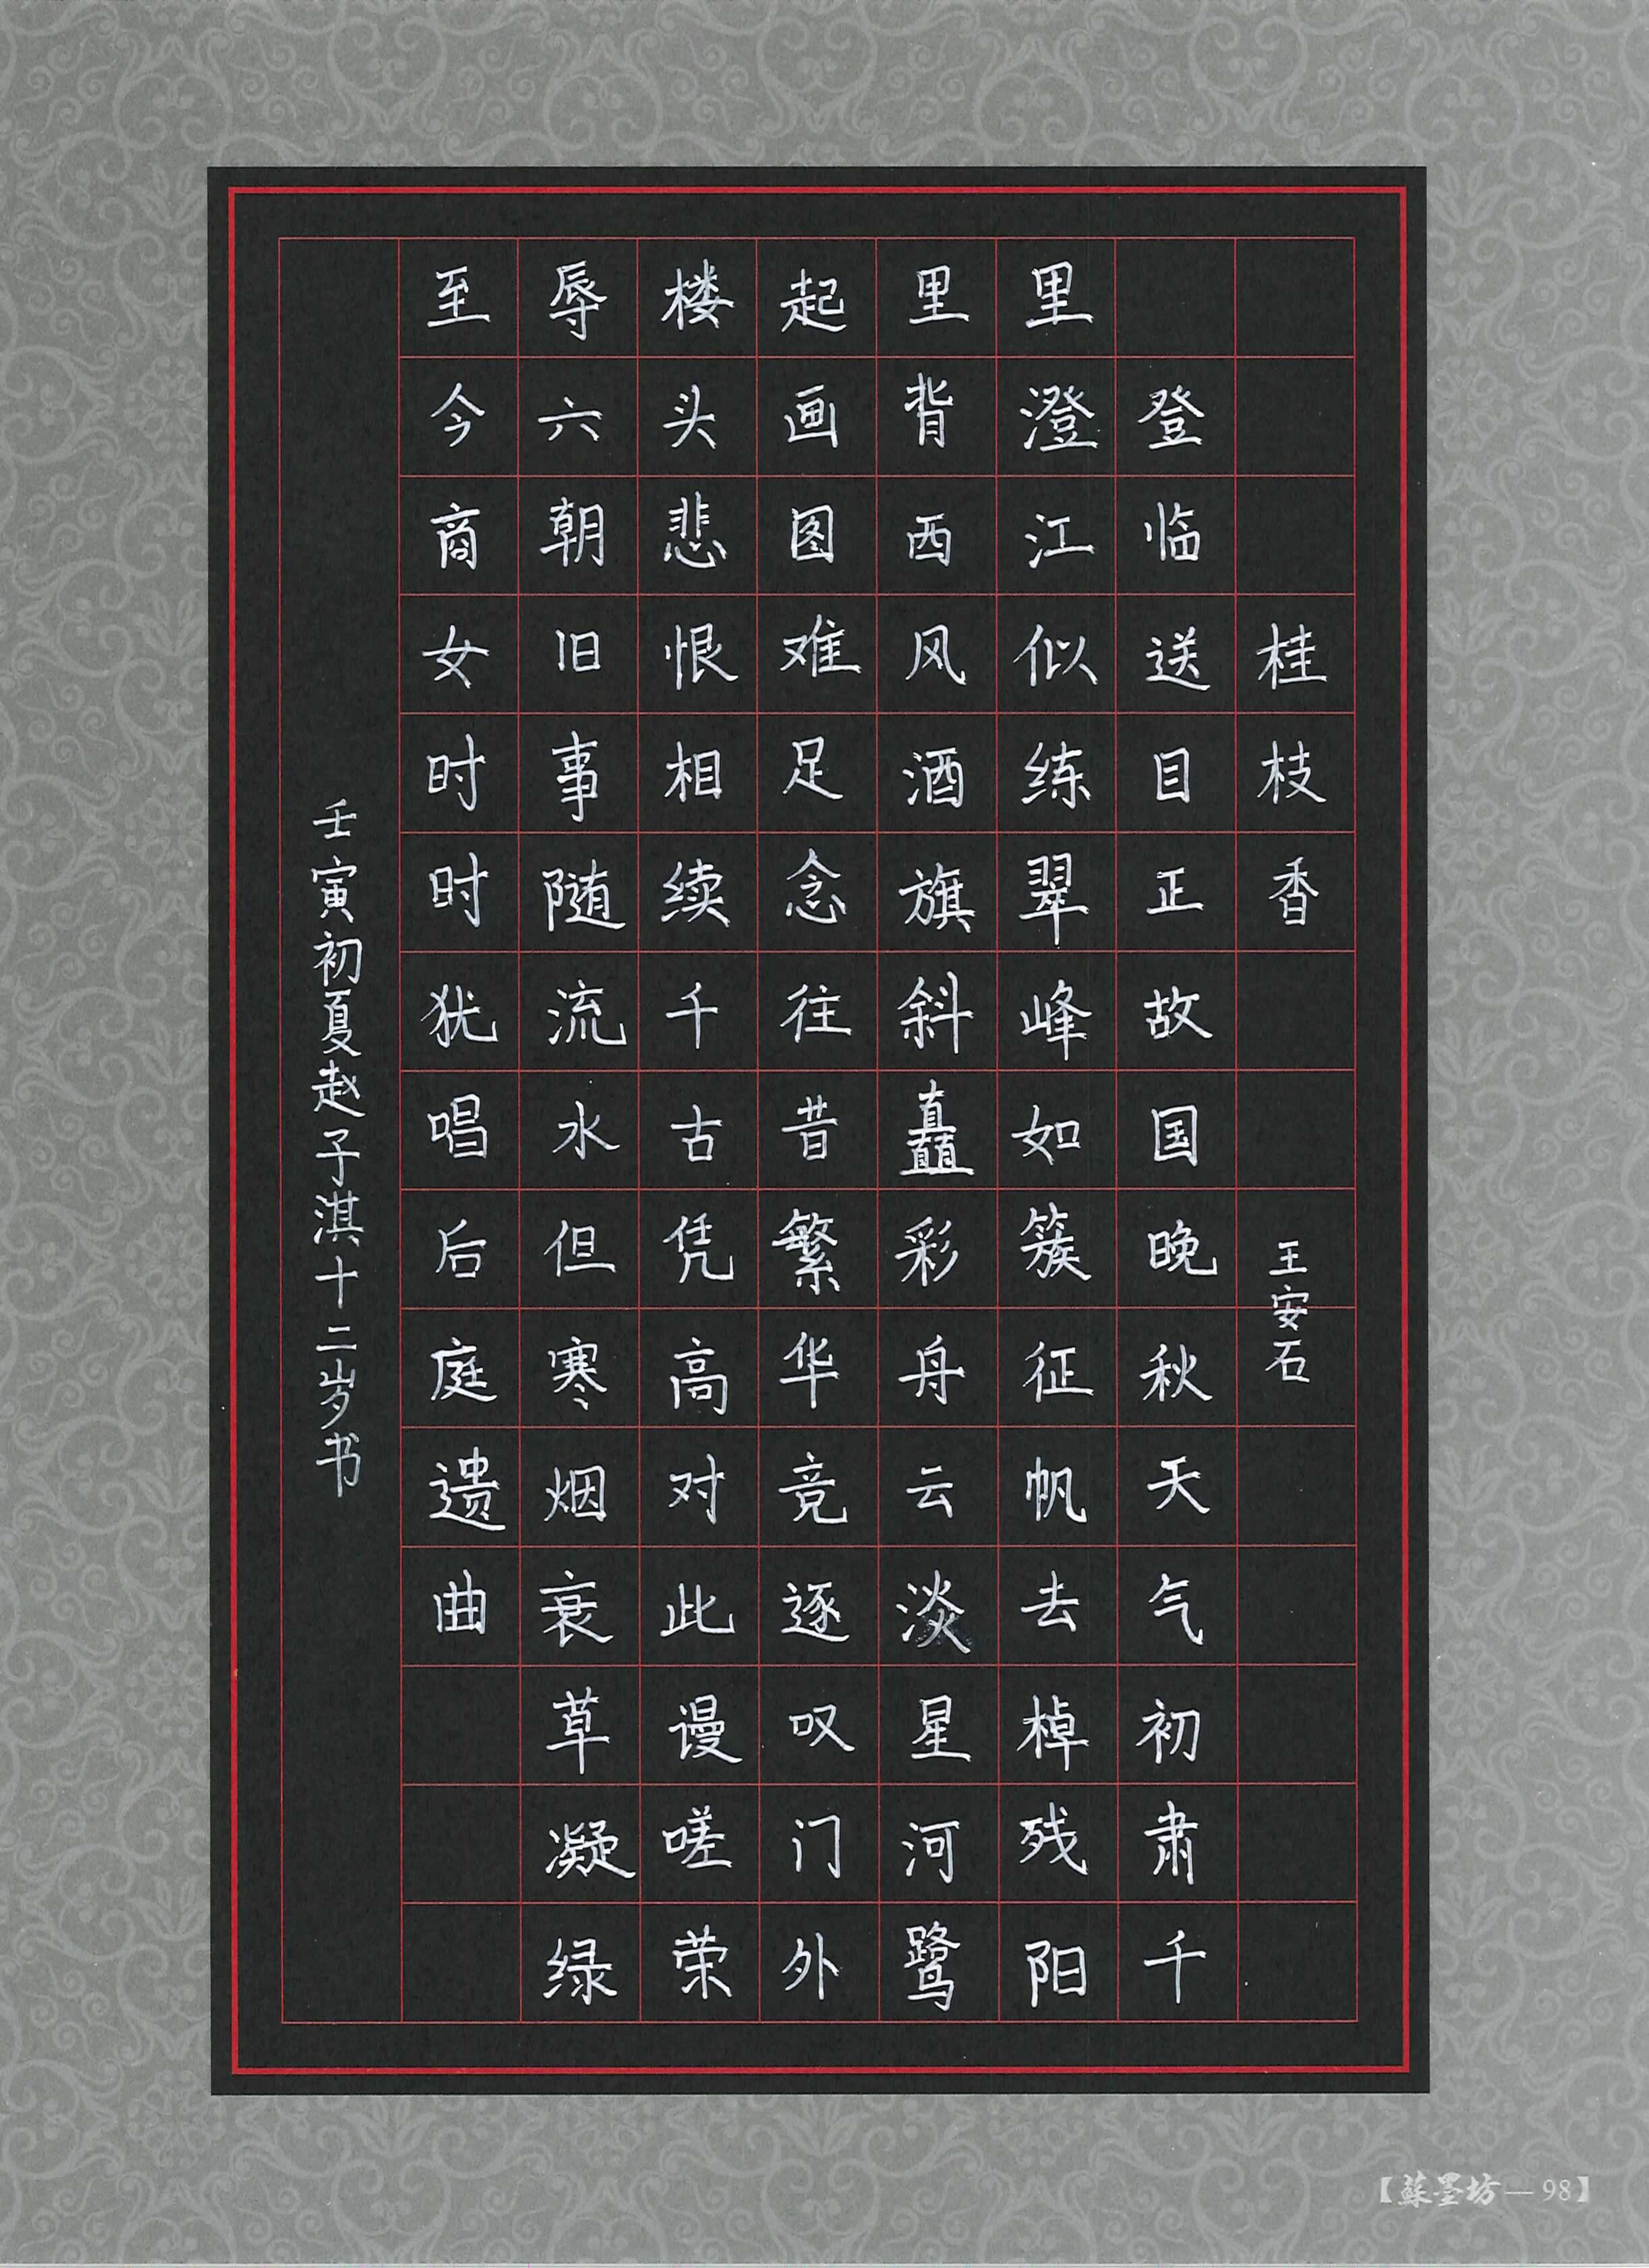 桂枝香 王安石
登临送目正故国晚秋天气初肃千
里澄江似练翠峰如簇征帆去棹残阳
里背西风酒旗斜矗彩舟云淡星河鹭
起画图难足念往昔繁华竞逐叹门外
楼头悲恨相续千古凭高对此谩嗟荣
辱六朝旧事随流水但寒烟衰草凝绿
至今商女时时犹唱后庭遗曲
壬寅初夏赵子淇十二岁书
【蘇墨坊—98】